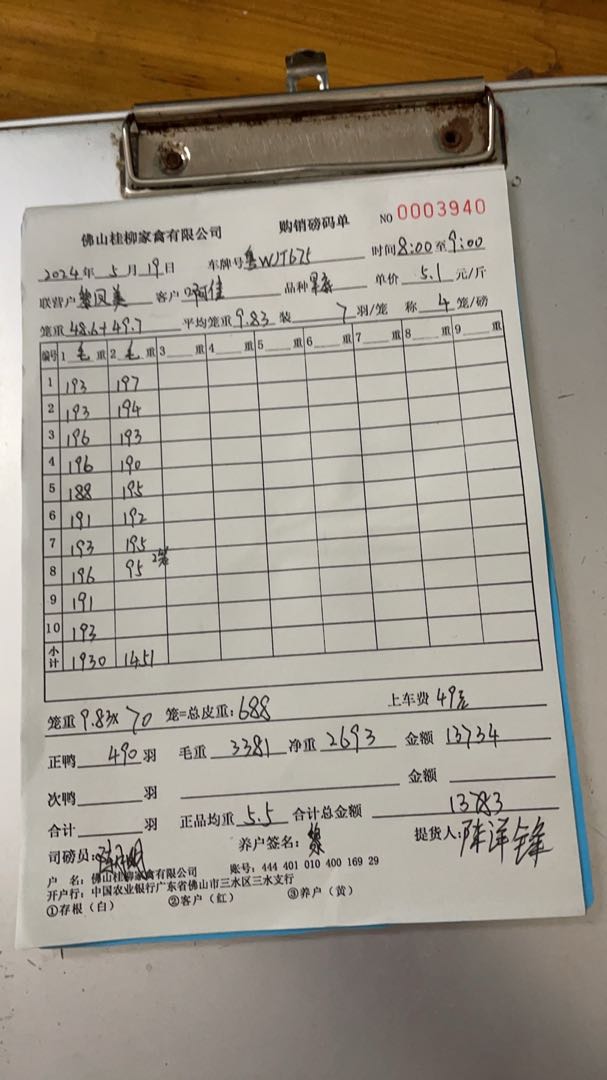 佛山桂柳家禽有限公司 购销磅码单 NO 0003940
2024年 5 月 19 日 车牌号 WJT675 时间 8:00 至 9:00
联营户 黎凤美 客户 啊佳 品种 单价 5.1 元/斤
笼重 48.6+49.7 平均笼重 9.83 装 7 羽/笼 称 4 笼/磅
编号 1 毛 重 2 毛 重 3 重 4 重 5 重 6 重 7 重 8 重 9 重
1 193 197
2 193 194
3 196 193
4 196 190
5 188 195
6 191 192
7 193 195
8 196 95 2笼
9 191
10 193
小计 1930 1451
笼重 9.83× 70 笼=总皮重: 688 上车费 49元
正鸭 490 羽 毛重 3381 净重 2693 金额 13734
次鸭 羽 金额
合计 羽 正品均重 5.5 合计总金额 13783
司磅员: 养户签名: 黎 提货人: 陈洋锋
户 名: 佛山桂柳家禽有限公司 账号: 444 401 010 400 169 29
开户行: 中国农业银行广东省佛山市三水区三水支行
①存根（白） ②客户（红） ③养户（黄）